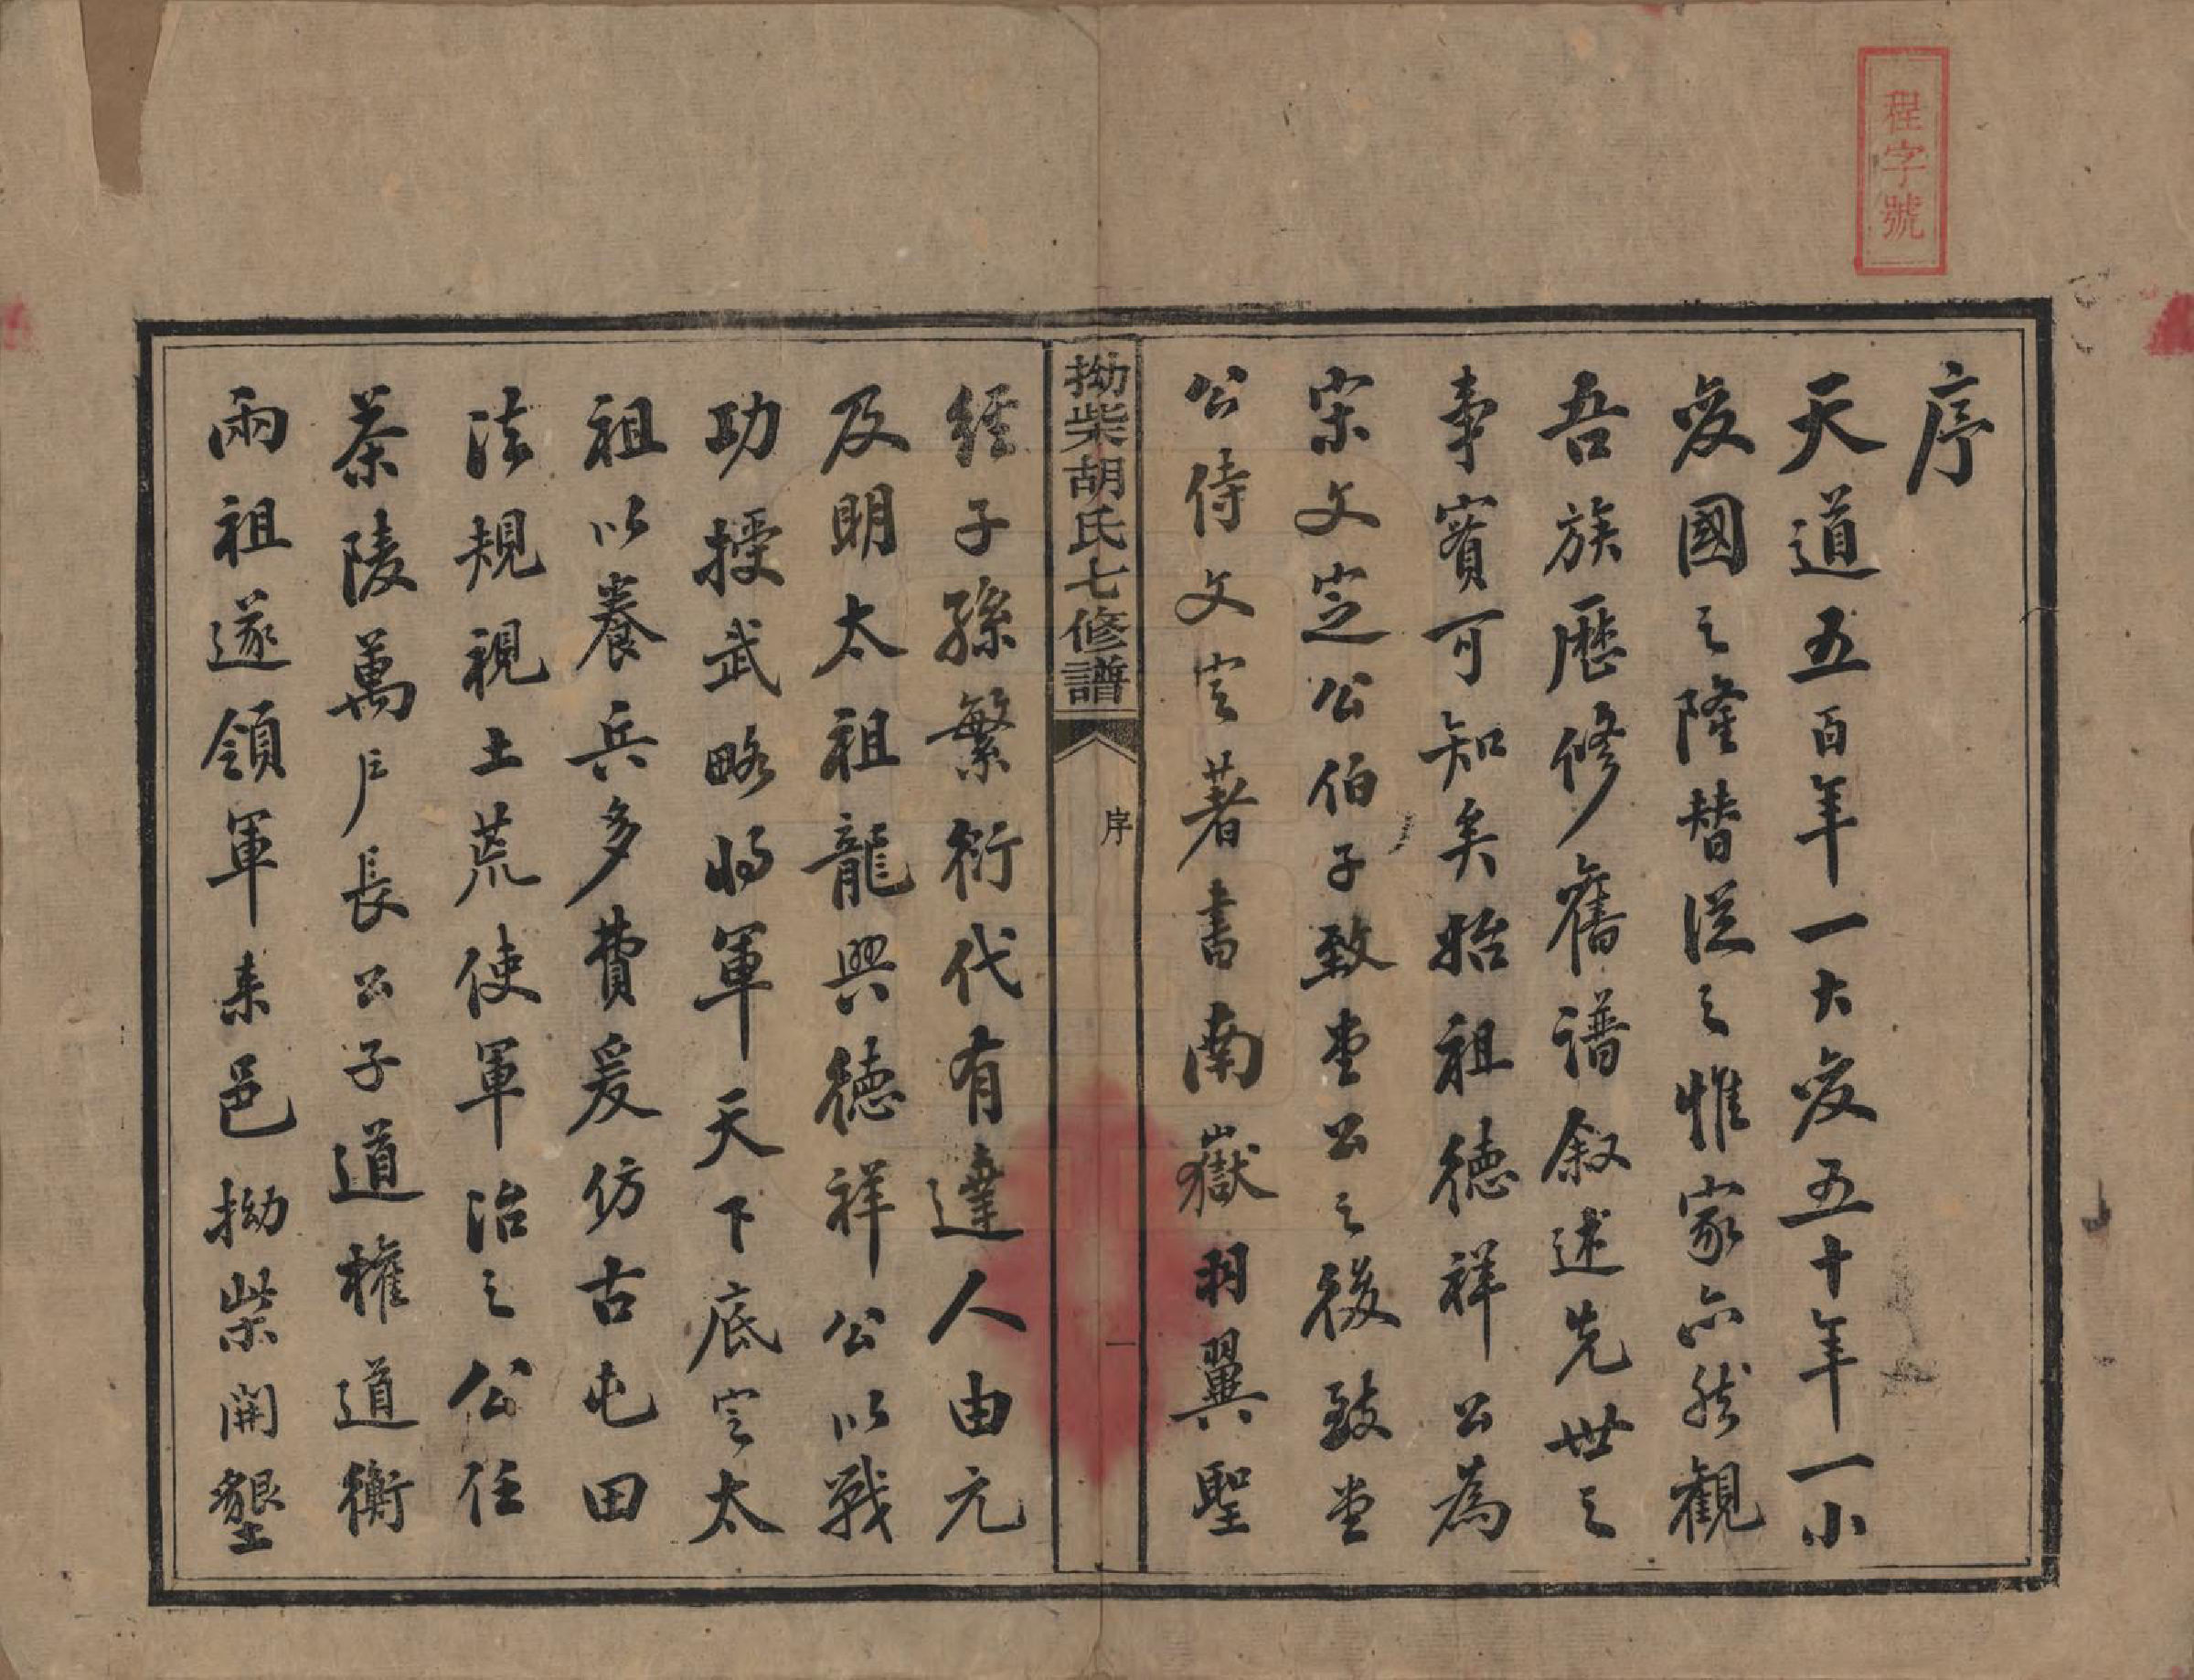 程字號
序
天道五百年一大変五十年一小
変國之隆替從之惟家亦然觀
吾族歷修舊譜叙述先世之
事實可知矣始祖德祥公為
宋文定公伯子致堂公之後致堂
公侍文定著書南嶽羽翼聖
拗柴胡氏七修譜
序
一
經子孫繁衍代有達人由元
及明太祖龍興德祥公以戰
功授武略将軍天下底定太
祖以養兵多費爰仿古屯田
法規視土荒使軍治之公任
茶陵萬户長公子道權道衡
兩祖遂領軍来邑拗柴開墾